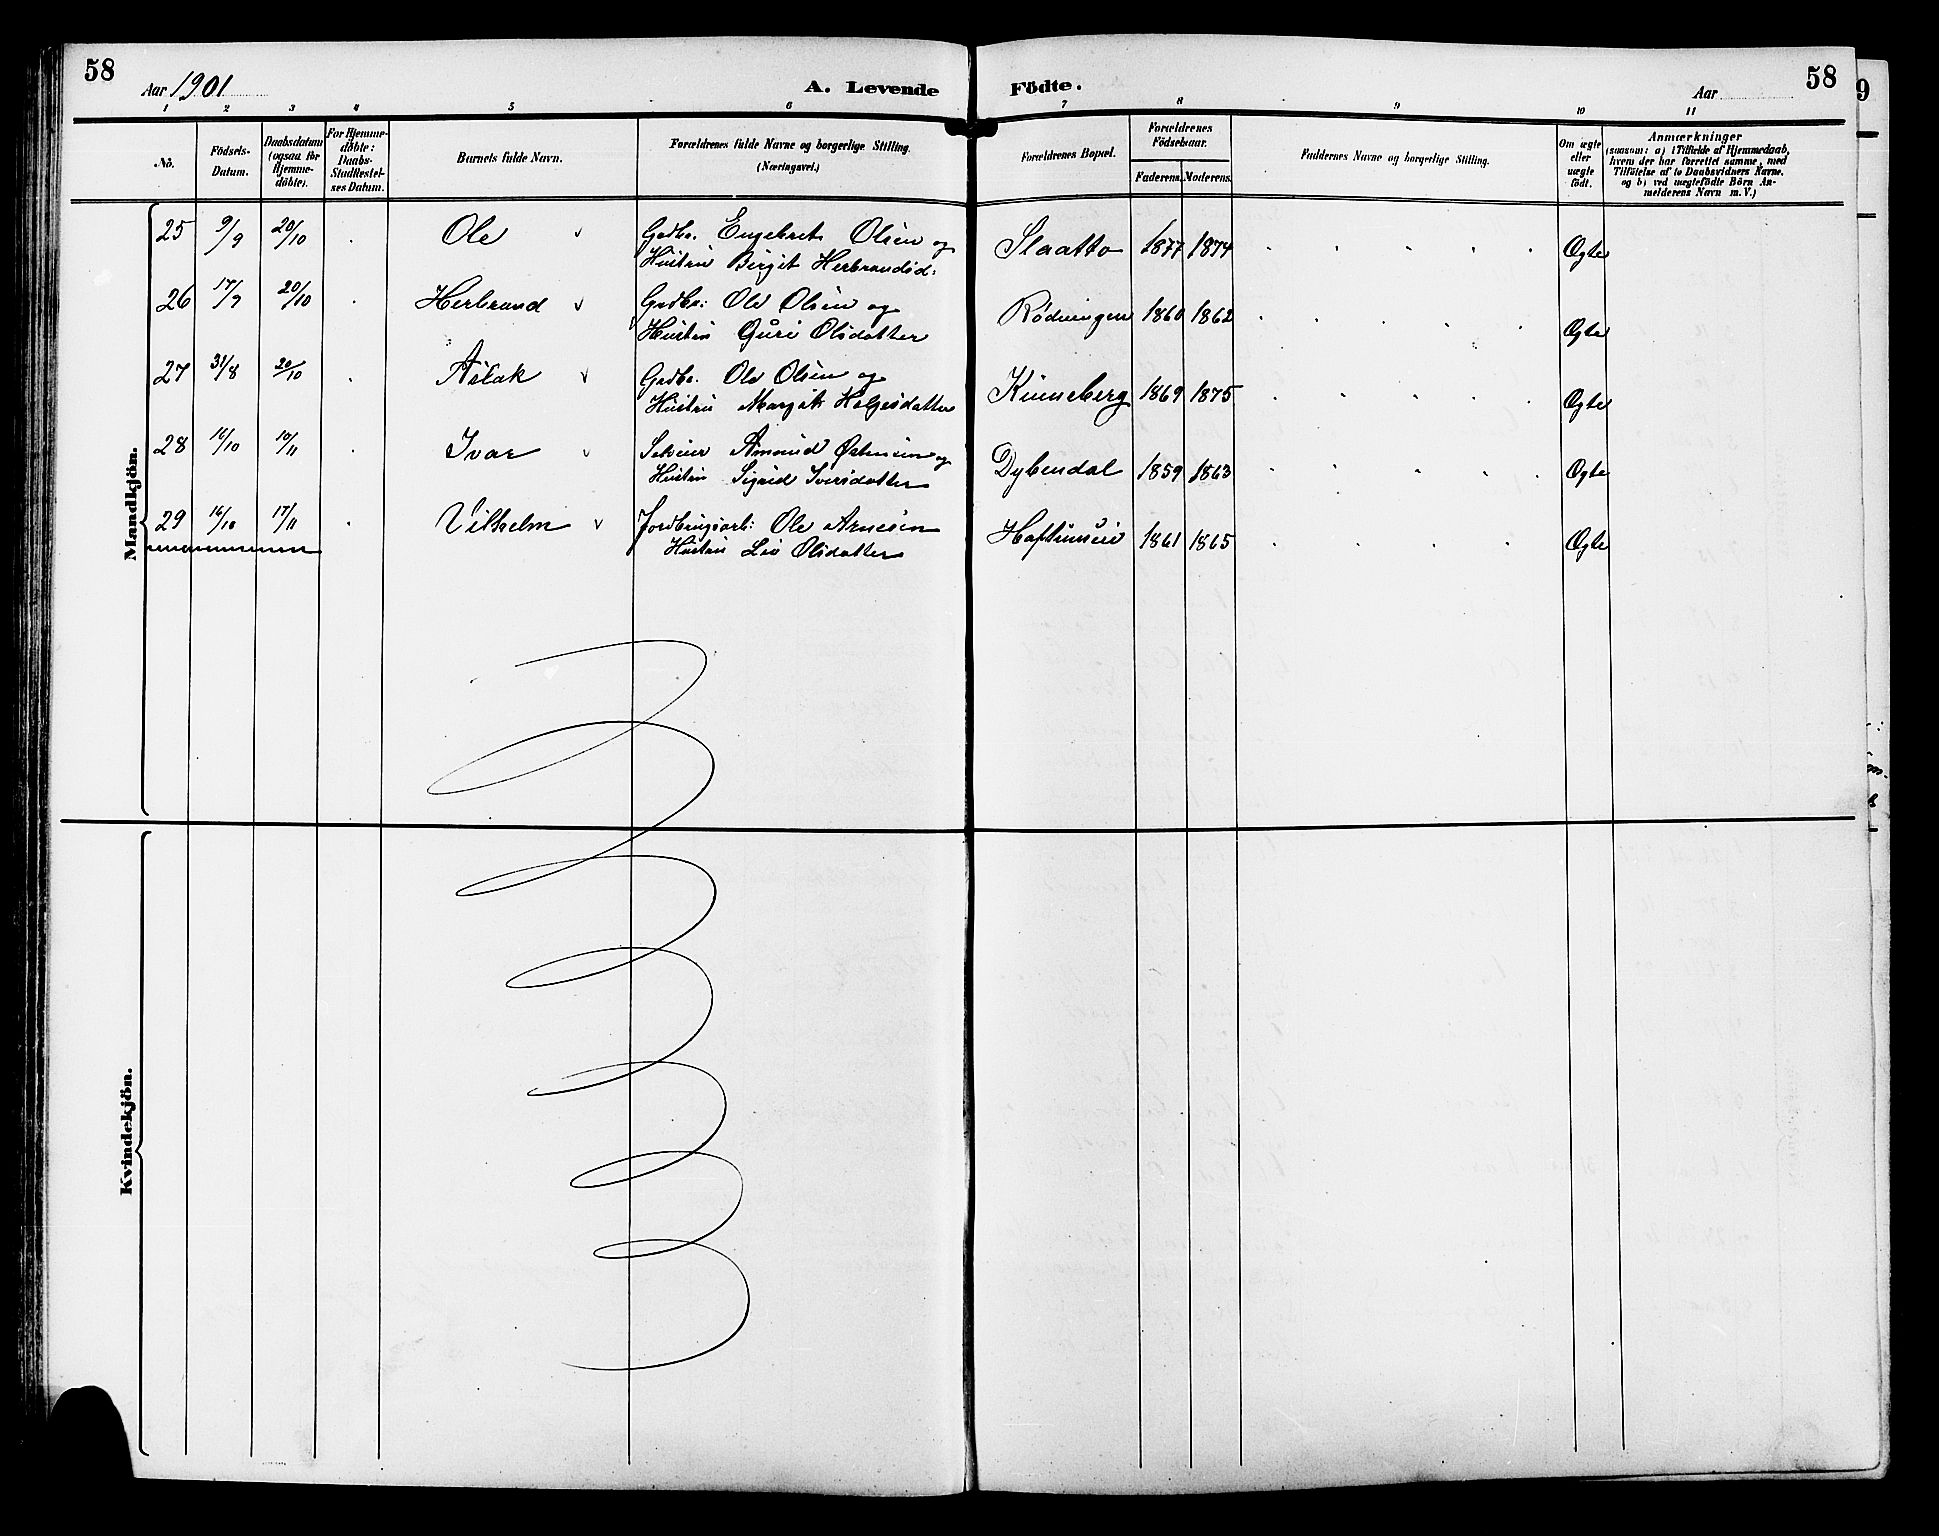 58
Aar 1901
A. Levende Födte.
Aar
58
9
1 2 3 4 5 6 7 8 9 10 11
No.
Födsels-Datum.
Daabsdatum (ogsaa for Hjemme-döbte).
For Hjemme-döbte: Daabs-Stadfæstel-ses Datum.
Barnets fulde Navn.
Forældrenes fulde Navne og borgerlige Stilling. (Næringsvei.)
Forældrenes Bopæl.
Forældrenes Födselsaar.
Faderens. Moderens.
Faddernes Navne og borgerlige Stilling.
Om ægte eller uægte födt.
Anmærkninger
(saasom: a) i Tilfælde af Hjemmedaab,
hvem der har forrettet samme, med
Tilföielse af to Daabsvidners Navne.
og b) ved uægtefödte Börn An-
melderens Navn m. V.)
Mandkjön.
25 9/9 20/10 Ole Gadbr. Engebret Olsen og Slaatto 1877 1874 Ægte
Hustru Birgit Herbrandsd:
26 17/9 20/10 Herbrand Gadbr: Ole Olsen og Rödningen 1860 1862 Ægte
Hustru Guri Olsdatter
27 31/8 20/10 Aslak Gadbr. Ole Olsen og Kinneberg 1869 1875 Ægte
Hustru Margit Helgesdatter
28 16/10 10/11 Ivar Amund Østensen og Dybendal 1859 1863 Ægte
Hustru Sigrid Iversdatter
29 16/10 17/11 Vilhelm Jordbrugsarb: Ole Arnesen 1861 1865 Ægte
Hustru Liv Olsdatter
Kvindekjön.